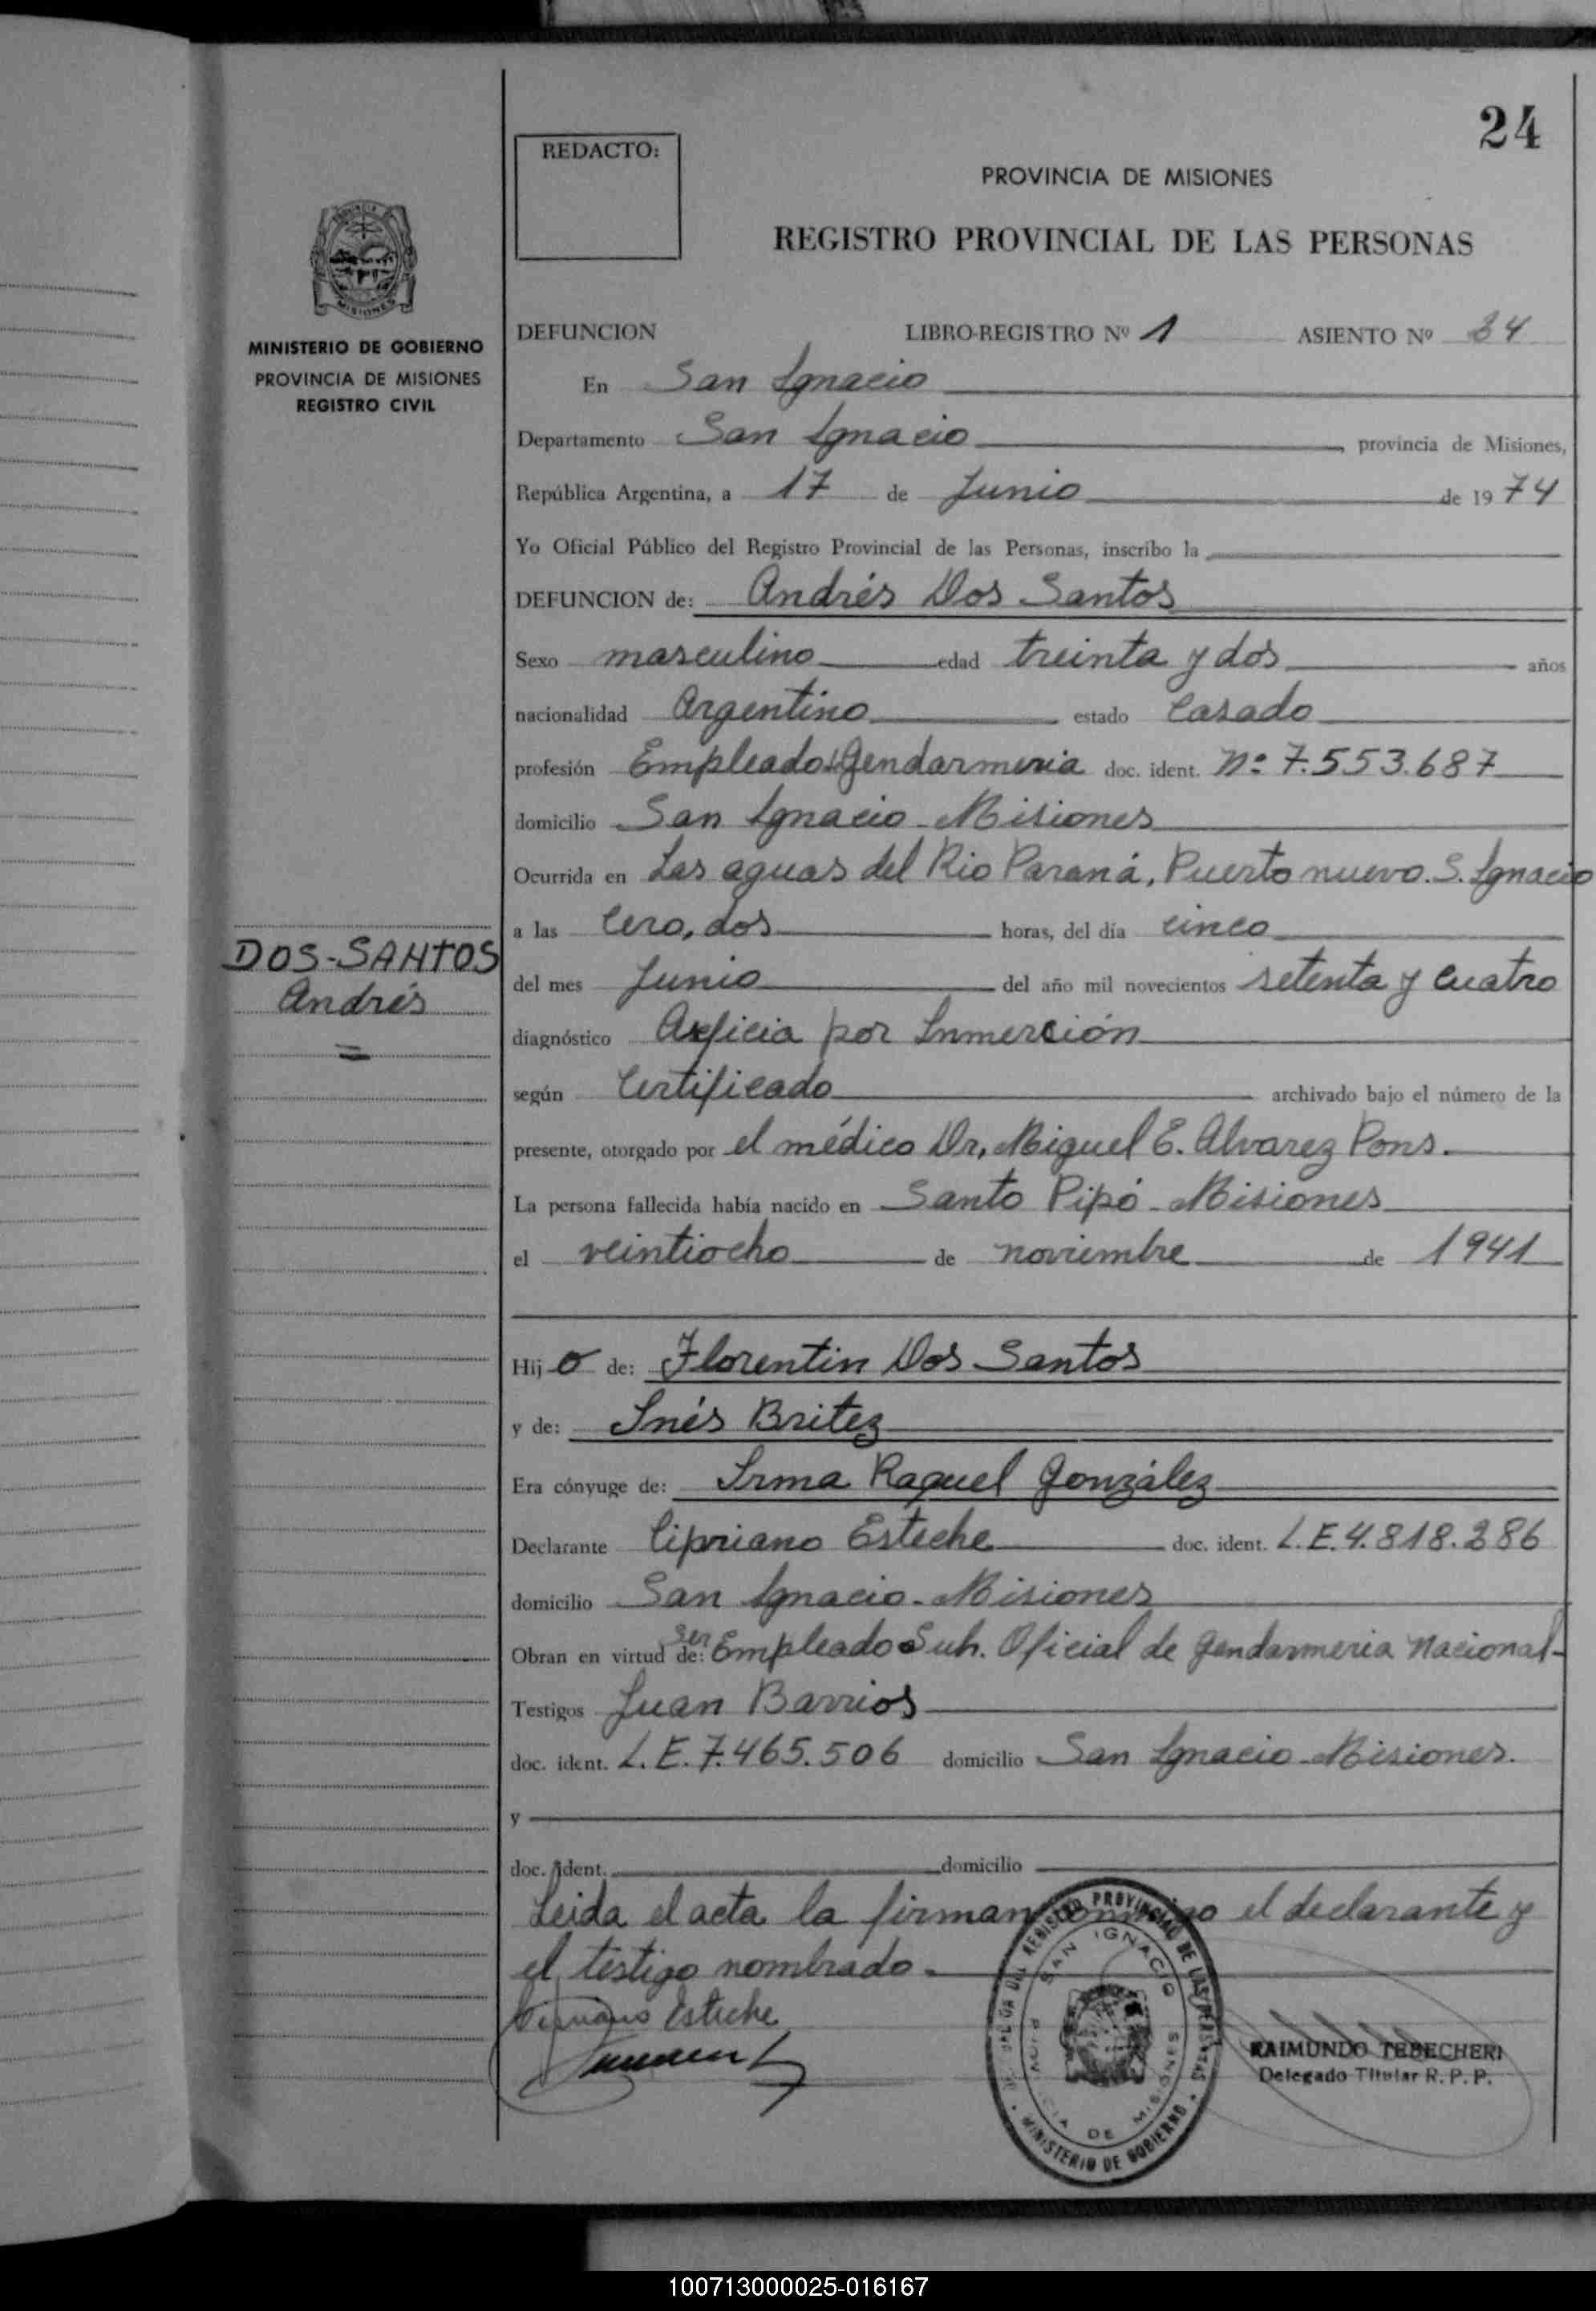 24
REDACTO:
PROVINCIA DE MISIONES
REGISTRO PROVINCIAL DE LAS PERSONAS
MINISTERIO DE GOBIERNO
PROVINCIA DE MISIONES
REGISTRO CIVIL
DEFUNCION LIBRO-REGISTRO Nº 1 ASIENTO Nº 34
En San Ignacio
Departamento San Ignacio provincia de Misiones,
República Argentina, a 17 de Junio de 1974
Yo Oficial Público del Registro Provincial de las Personas, inscribo la
DEFUNCION de: Andrés Dos Santos
Sexo masculino edad treinta y dos años
nacionalidad Argentino estado Casado
profesión Empleado Gendarmeria doc. ident. Nº 7.553.687
domicilio San Ignacio - Misiones
Ocurrida en Las aguas del Rio Paraná, Puerto nuevo. S. Ignacio
a las Cero, dos horas, del día cinco
DOS-SANTOS
Andrés
=
del mes Junio del año mil novecientos setenta y cuatro
diagnóstico Asficia por Inmersión
según Certificado archivado bajo el número de la
presente, otorgado por el médico Dr, Miguel E. Alvarez Pons.
La persona fallecida había nacido en Santo Pipó - Misiones
el veintiocho de noviembre de 1941
Hijo de: Florentin Dos Santos
y de: Inés Britez
Era cónyuge de: Irma Raquel González
Declarante Cipriano Esteche doc. ident. L.E. 4.818.286
domicilio San Ignacio - Misiones
Obran en virtud de: ser Empleado Sub. Oficial de Gendarmeria Nacional-
Testigos Juan Barrios
doc. ident. L.E. 7.465.506 domicilio San Ignacio - Misiones.
y
doc. ident. domicilio
Leida el acta la firman conmigo el declarante y
el testigo nombrado.
Cipriano Esteche
REGISTRO PROVINCIAL DE LAS PERSONAS
SAN IGNACIO
PROVINCIA DE MISIONES
MINISTERIO DE GOBIERNO
RAIMUNDO TEBECHERI
Delegado Titular R. P. P.
100713000025-016167